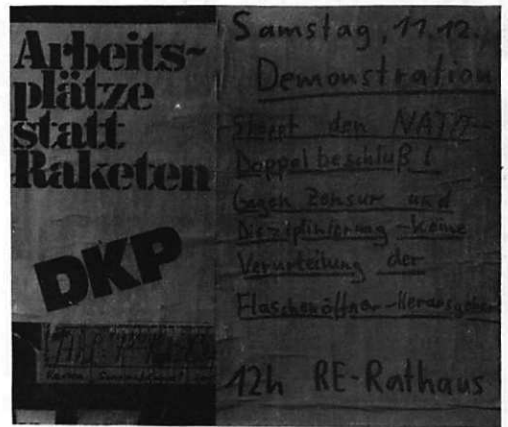 Arbeits-
plätze
statt
Raketen
DKP
Samstag, 11.12.
Demonstration
Stoppt den NATO-
Doppelbeschluß!
Gegen Zensur und
Disziplinierung - Keine
Verurteilung der
Flaschenöffner-Herausgeber
12h RE-Rathaus